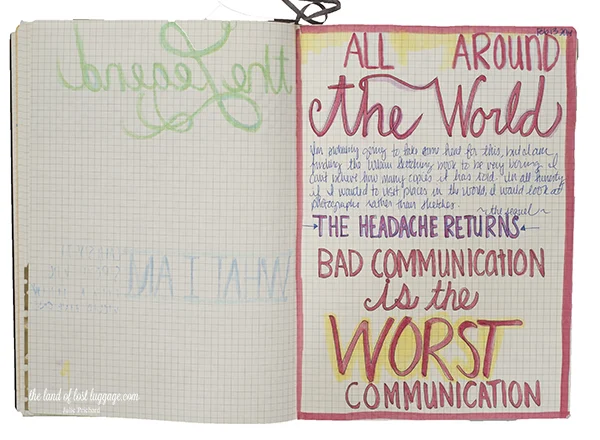 the Legend
WHAT I AM
the land of lost luggage.com
Julie Prichard
ALL AROUND
the World
I'm probably going to take some heat for this, but I am
finding the Urban Sketching book to be very boring. I
can't believe how many copies it has sold. In all honesty
if I wanted to visit places in the world, I would look at
photographs rather than sketches.
~the sequel~
THE HEADACHE RETURNS
BAD COMMUNICATION
is the
WORST
COMMUNICATION